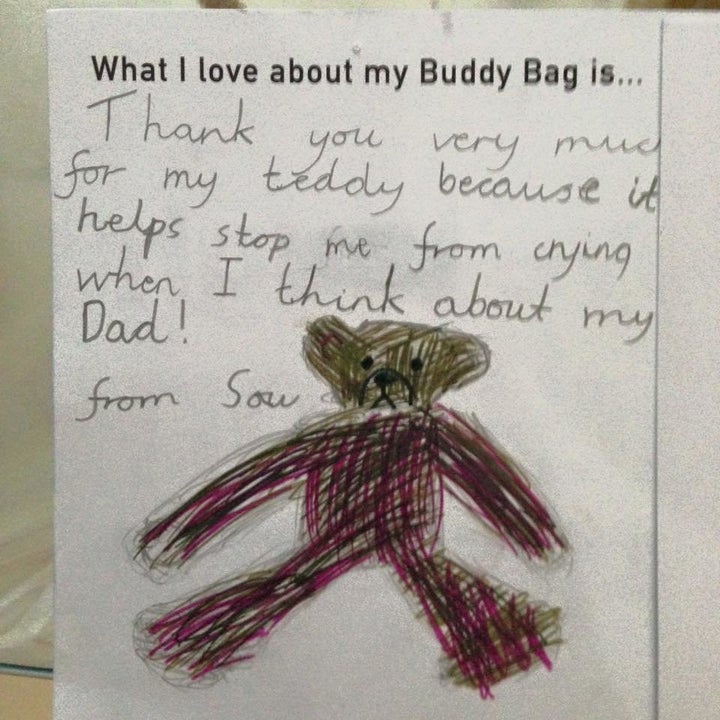 What I love about my Buddy Bag is...
Thank you very much
for my teddy because it
helps stop me from crying
when I think about my
Dad!
from Sow